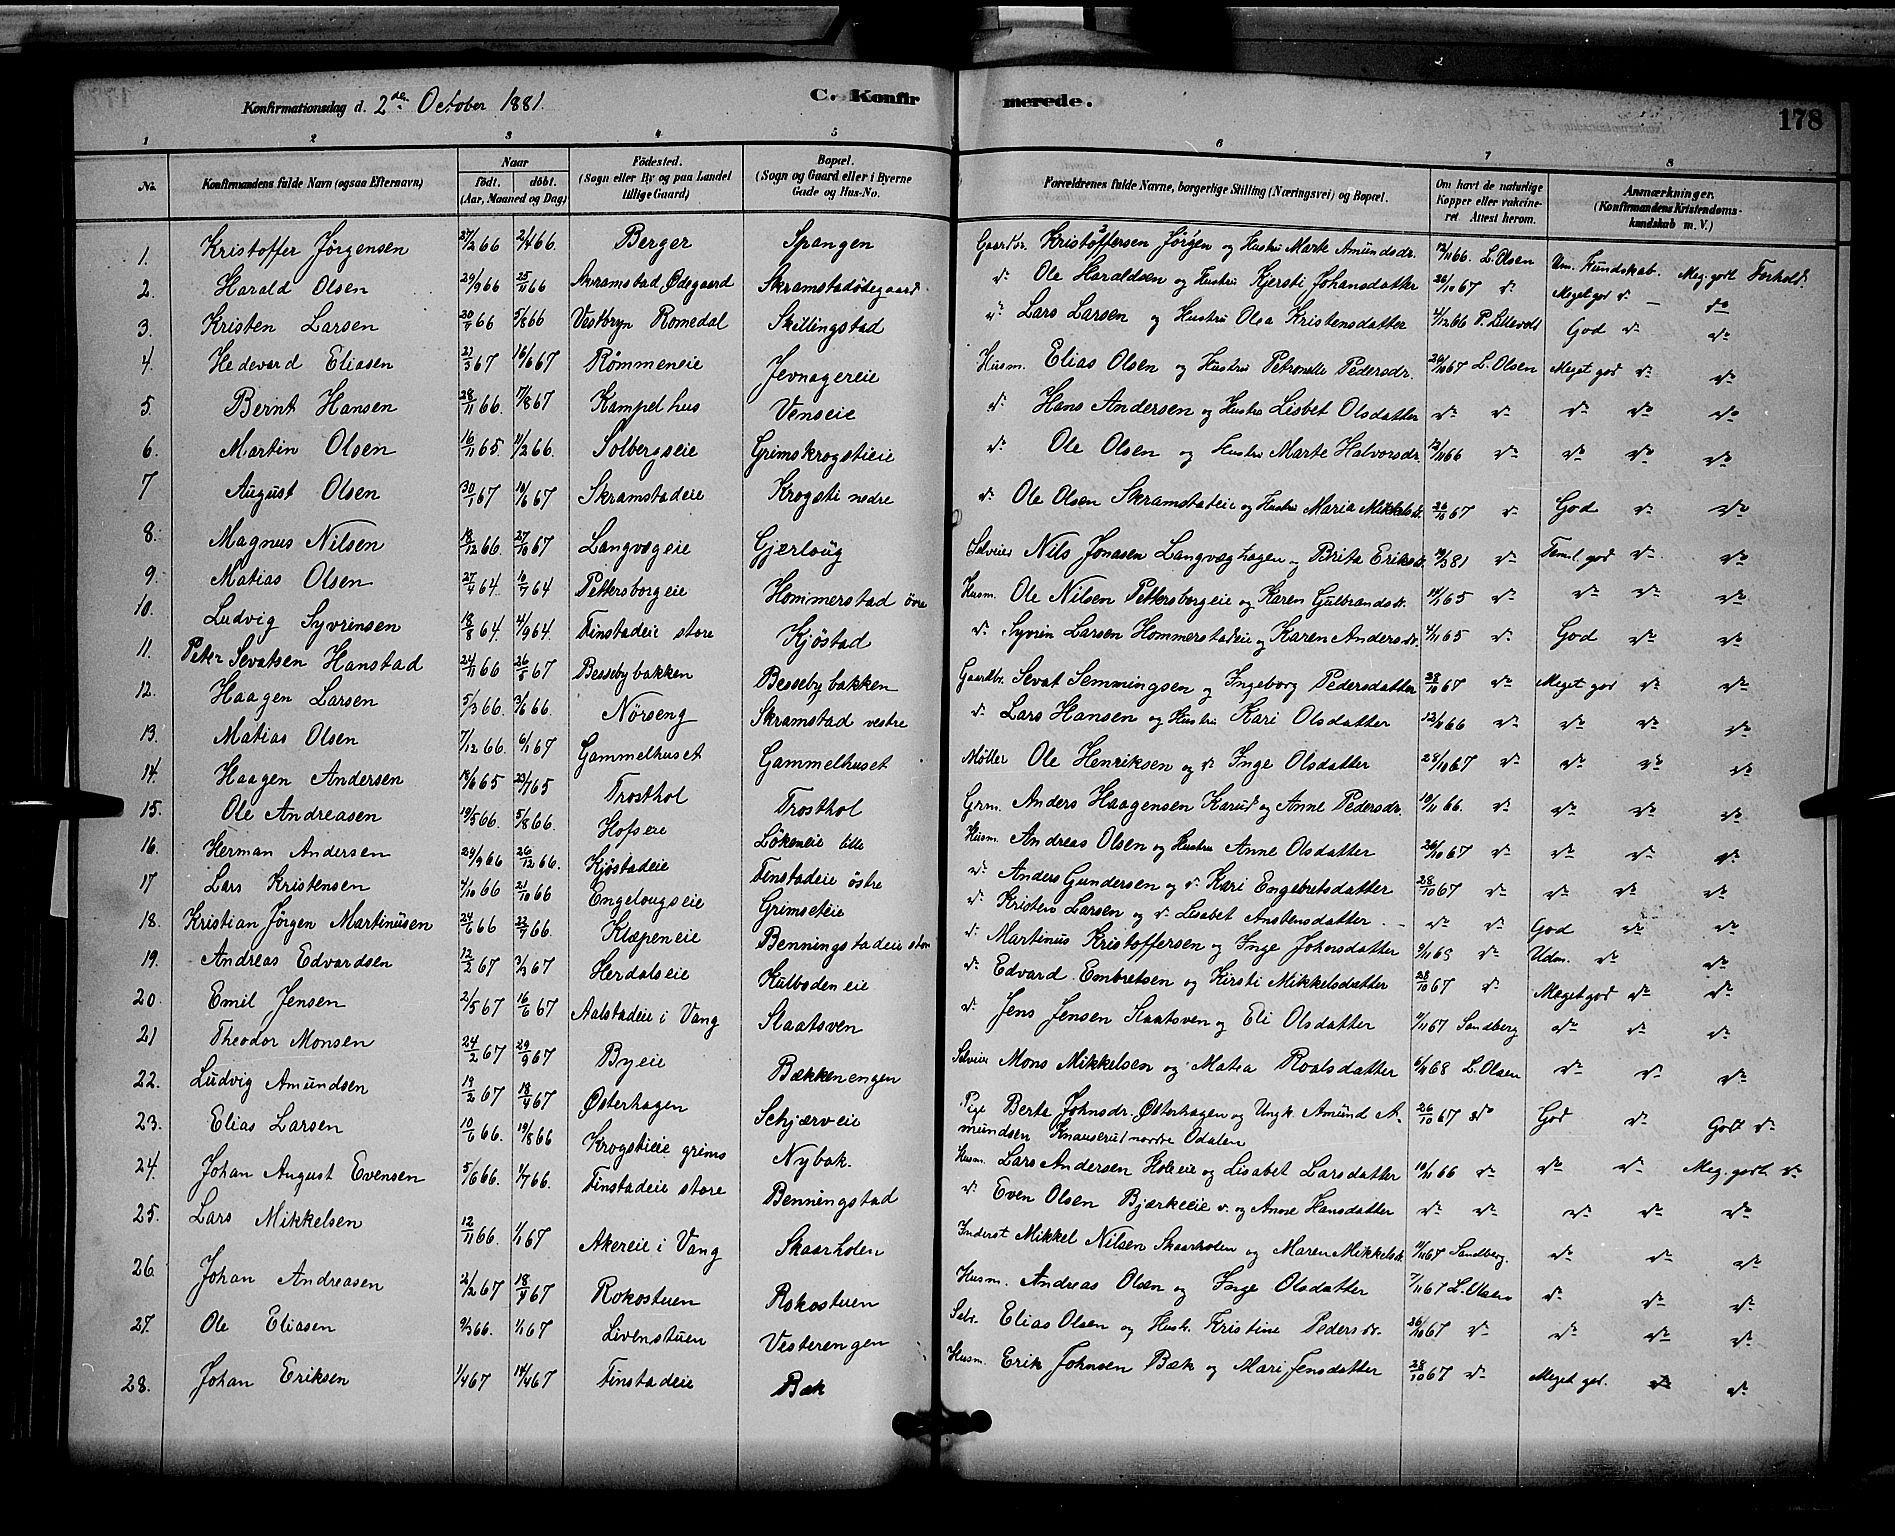 Konfirmationsdag d. 2den October 1881. C. Konfirmerede. 178
1 2 3 4 5 6 7 8
No. Konfirmandens fulde Navn (ogsaa Efternavn) Naar födt. döbt. (Aar, Maaned og Dag) Födested. (Sogn eller By og paa Landet tillige Gaard) Bopæl. (Sogn og Gaard eller i Byerne Gade og Hus-No. Forældrenes fulde Navne, borgerlige Stilling (Næringsvei) og Bopæl. Om havt de naturlige Kopper eller vakcineret. Attest herom. Anmærkninger. (Konfirmandens Kristendomskundskab m. V.)
1. Kristoffer Jørgensen 27/2 66 2/4 66. Berger Spangen Gaardbr. Kristoffersen Jörgen og Hustru Marte Amundsdr. 12/11 66. L. Olsen Um. Kundskab. Meg. godt Forhold.
2. Harald Olsen 29/9 66 25/11 66 Skramstad Ødegaard Skramstadödegaard do Ole Haraldsen og Hustru Kjersti Johansdatter 26/10 67 do Meget god do do
3. Kristen Larsen 20/4 66 5/8 66 Vestbyn Romedal Skillingstad do Lars Larsen og Hustru Olea Kristensdatter 4/12 66 P. Lillevold God do do
4. Hedevard Eliasen 21/3 67 16/6 67 Rømmeneie Jevnagereie Husm. Elias Olsen og Hustru Petronelle Pedersdr. 26/10 67 L. Olsen Meget god do do
5. Bernt Hansen 28/11 66. 17/8 67 Kampelhus Venseie do Hans Andersen og Hustru Lisbet Olsdatter do do do do do
6. Martin Olsen 16/11 65. 11/2 66. Solbergseie Grimskrogstieie do Ole Olsen og Hustru Marte Halvorsdr. 12/11 66 do do do do
7 August Olsen 30/1 67 10/6 67 Skramstadeie Krogsti nedre do Ole Olsen Skramstadeie og Hustru Maria Mikkelsdr. 26/10 67 do God do do
8. Magnus Nilsen 18/12 66. 27/10 67 Langvægeie Gjærloug Selveier Nils Jonasen Langvæghagen og Brita Eriksdr. 81 do Teml. god do do
9. Matias Olsen 27/4 64. 10/7 64 Pettersborgeie Hommerstad övre Husm. Ole Nilsen Pettersborgeie og Karen Gulbrandsdr. 14/11 65 do do do do
10. Ludvig Syvrinsen 18/8 64. 4/9 64. Finstadeie store Kjöstad do Syvrin Larsen Hommerstadeie og Karen Andersdr. 4/11 65 do God do do
11. Peter Sevatsen Hanstad 24/11 66 26/5 67 Bessebybakken Bessebybakken Gaardbr. Sevat Semmingsen og Ingeborg Pedersdatter 28/10 67 do Meget god do do
12. Haagen Larsen 5/3 66. 3/6 66. Nörseng Skramstad vestre do Lars Hansen og Hustru Kari Olsdatter 12/11 66 do do do do
13. Matias Olsen 7/12 66. 6/1 67 Gammelhuset Gammelhuset Møller Ole Henriksen og do Inge Olsdatter 28/10 67 do do do do
14. Haagen Andersen 18/6 65 23/7 65 Trosthol Trosthol Grm. Anders Haagensen Karud og Anne Pedersdr. 10/11 66. do do do do
15. Ole Andreasen 19/5 66. 5/8 66. Hofseie Lökeneie lille Husm. Andreas Olsen og Hustru Anne Olsdatter 26/10 67 do do do do
16. Herman Andersen 29/9 66 26/12 66. Kjöstadeie Finstadeie östre do Anders Gundersen og do Kari Engebretsdatter 28/10 67 do do do do
17 Lars Kristensen 7/10 66 21/10 66 Engelougseie Grimseteie do Kristen Larsen og do Lisabet Anstensdatter do do God do do
18. Kristian Jörgen Martinusen 24/6 66 22/7 66. Klæpeneie Benningstadeie store do Martinus Kristoffersen og Inge Johansdatter 9/11 69 do Udm. do do
19. Andreas Edvardsen 12/2 67 3/3 67 Herdalseie Kulbodeneie do Edvard Embretsen og Kirsti Mikkelsdatter 28/10 67 do Meget god do do
20. Emil Jensen 2/5 67 16/6 67 Aalstadeie i Vang Slaatsven do Jens Jensen Slaatsven og Eli Olsdatter 9/11 67 Sandberg do do do
21 Theodor Monsen 24/2 67 29/9 67 Byeie Bækkenengen Selveier Mons Mikkelsen og Matea Roalsdatter 6/11 68 L. Olsen do do do
22. Ludvig Amundsen 19/2 67 18/4 67 Østerhagen Schjærveie Pige Berte Johnsdr. Østerhagen og Ungk. Amund Amundsen Knauserud nordre Odalen 26/10 67 do God do Godt do
23. Elias Larsen 10/6 66. 19/8 66 Krogstieie grims Nybak. Husm. Lars Andersen Holeie og Lisabet Larsdatter 10/11 66 do do do Meg. godt do
24. Johan August Evensen 5/6 66. 1/7 66. Finstadeie store Benningstad do Even Olsen Bjørkeeie do og Anne Hansdatter do do do do do
25. Lars Mikkelsen 12/11 66. 1/1 67 Akereie i Vang Skaarholen Inderst Mikkel Nilsen Skaarholen og Maren Mikkelsdr. 11/11 67 Sandberg. do do do
26. Johan Andreasen 2/2 67 18/4 67 Rokostuen Rokostuen Husm. Andreas Olsen og Inge Olsdatter 7/11 67 L. Olsen do do do
27. Ole Eliasen 9/3 66. 1/1 67 Livenstuen Vesterengen Selv. Elias Olsen og Hustr. Kristine Pedersdr. 26/10 67 do do do do
28. Johan Eriksen 1/4 67 14/4 67 Finstadeie Bæk Husm. Erik Johnsen Bæk og Mari Jensdatter 28/10 67 do Meget god. do do